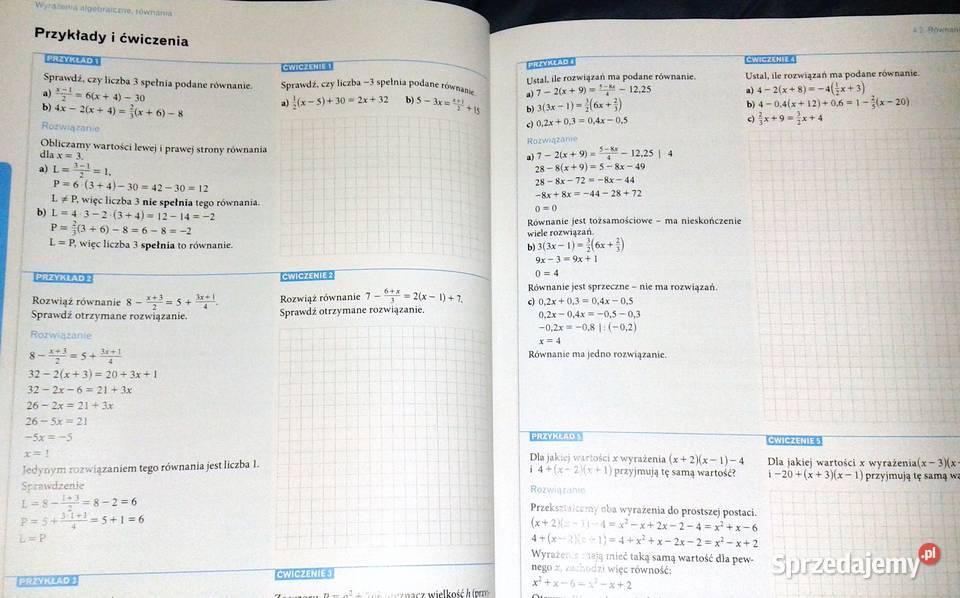 Wyrażenia algebraiczne, równania
Przykłady i ćwiczenia
PRZYKŁAD 1
Sprawdź, czy liczba 3 spełnia podane równanie.
a) \frac{x-1}{2} = 6(x + 4) − 30
b) 4x − 2(x + 4) = \frac{2}{3}(x + 6) − 8
Rozwiązanie
Obliczamy wartości lewej i prawej strony równania
dla x = 3.
a) L = \frac{3-1}{2} = 1,
P = 6 · (3 + 4) − 30 = 42 − 30 = 12
L ≠ P, więc liczba 3 nie spełnia tego równania.
b) L = 4 · 3 − 2 · (3 + 4) = 12 − 14 = −2
P = \frac{2}{3}(3 + 6) − 8 = 6 − 8 = −2
L = P, więc liczba 3 spełnia to równanie.
ĆWICZENIE 1
Sprawdź, czy liczba −3 spełnia podane równanie.
a) \frac{1}{2}(x − 5) + 30 = 2x + 32 b) 5 − 3x = \frac{x+1}{2} + 15
PRZYKŁAD 2
Rozwiąż równanie 8 − \frac{x+3}{2} = 5 + \frac{3x+1}{4}.
Sprawdź otrzymane rozwiązanie.
Rozwiązanie
8 − \frac{x+3}{2} = 5 + \frac{3x+1}{4}
32 − 2(x + 3) = 20 + 3x + 1
32 − 2x − 6 = 21 + 3x
26 − 2x = 21 + 3x
26 − 5x = 21
−5x = −5
x = 1
Jedynym rozwiązaniem tego równania jest liczba 1.
Sprawdzenie
L = 8 − \frac{1+3}{2} = 8 − 2 = 6
P = 5 + \frac{3·1+1}{4} = 5 + 1 = 6
L = P
ĆWICZENIE 2
Rozwiąż równanie 7 − \frac{6+x}{3} = 2(x − 1) + 7.
Sprawdź otrzymane rozwiązanie.
PRZYKŁAD 3
ĆWICZENIE 3
wielkość h
4.2. Równani
PRZYKŁAD 4
Ustal, ile rozwiązań ma podane równanie.
a) 7 − 2(x + 9) = \frac{5-8x}{4} − 12,25
b) 3(3x − 1) = \frac{3}{2}(6x + \frac{2}{3})
c) 0,2x + 0,3 = 0,4x − 0,5
Rozwiązanie
a) 7 − 2(x + 9) = \frac{5-8x}{4} − 12,25 | · 4
28 − 8(x + 9) = 5 − 8x − 49
28 − 8x − 72 = −8x − 44
−8x + 8x = −44 − 28 + 72
0 = 0
Równanie jest tożsamościowe – ma nieskończenie
wiele rozwiązań.
b) 3(3x − 1) = \frac{3}{2}(6x + \frac{2}{3})
9x − 3 = 9x + 1
0 = 4
Równanie jest sprzeczne – nie ma rozwiązań.
c) 0,2x + 0,3 = 0,4x − 0,5
0,2x − 0,4x = −0,5 − 0,3
−0,2x = −0,8 | : (−0,2)
x = 4
Równanie ma jedno rozwiązanie.
ĆWICZENIE 4
Ustal, ile rozwiązań ma podane równanie.
a) 4 − 2(x + 8) = −4(\frac{1}{2}x + 3)
b) 4 − 0,4(x + 12) + 0,6 = 1 − \frac{2}{5}(x − 20)
c) \frac{2}{3}x + 9 = \frac{3}{2}x + 4
PRZYKŁAD 5
Dla jakiej wartości x wyrażenia (x + 2)(x − 1) − 4
i 4 + (x − 2)(x + 1) przyjmują tę samą wartość?
Rozwiązanie
Przekształcamy oba wyrażenia do prostszej postaci.
(x + 2)(x − 1) − 4 = x² − x + 2x − 2 − 4 = x² + x − 6
4 + (x − 2)(x + 1) = 4 + x² + x − 2x − 2 = x² − x + 2
Wyrażenia mają mieć taką samą wartość dla pew-
nego x, zachodzi więc równość:
x² + x − 6 = x² − x + 2
ĆWICZENIE 5
Dla jakiej wartości x wyrażenia (x − 3)(x
i −20 + (x + 3)(x − 1) przyjmują tę samą
Sprzedajemy.pl